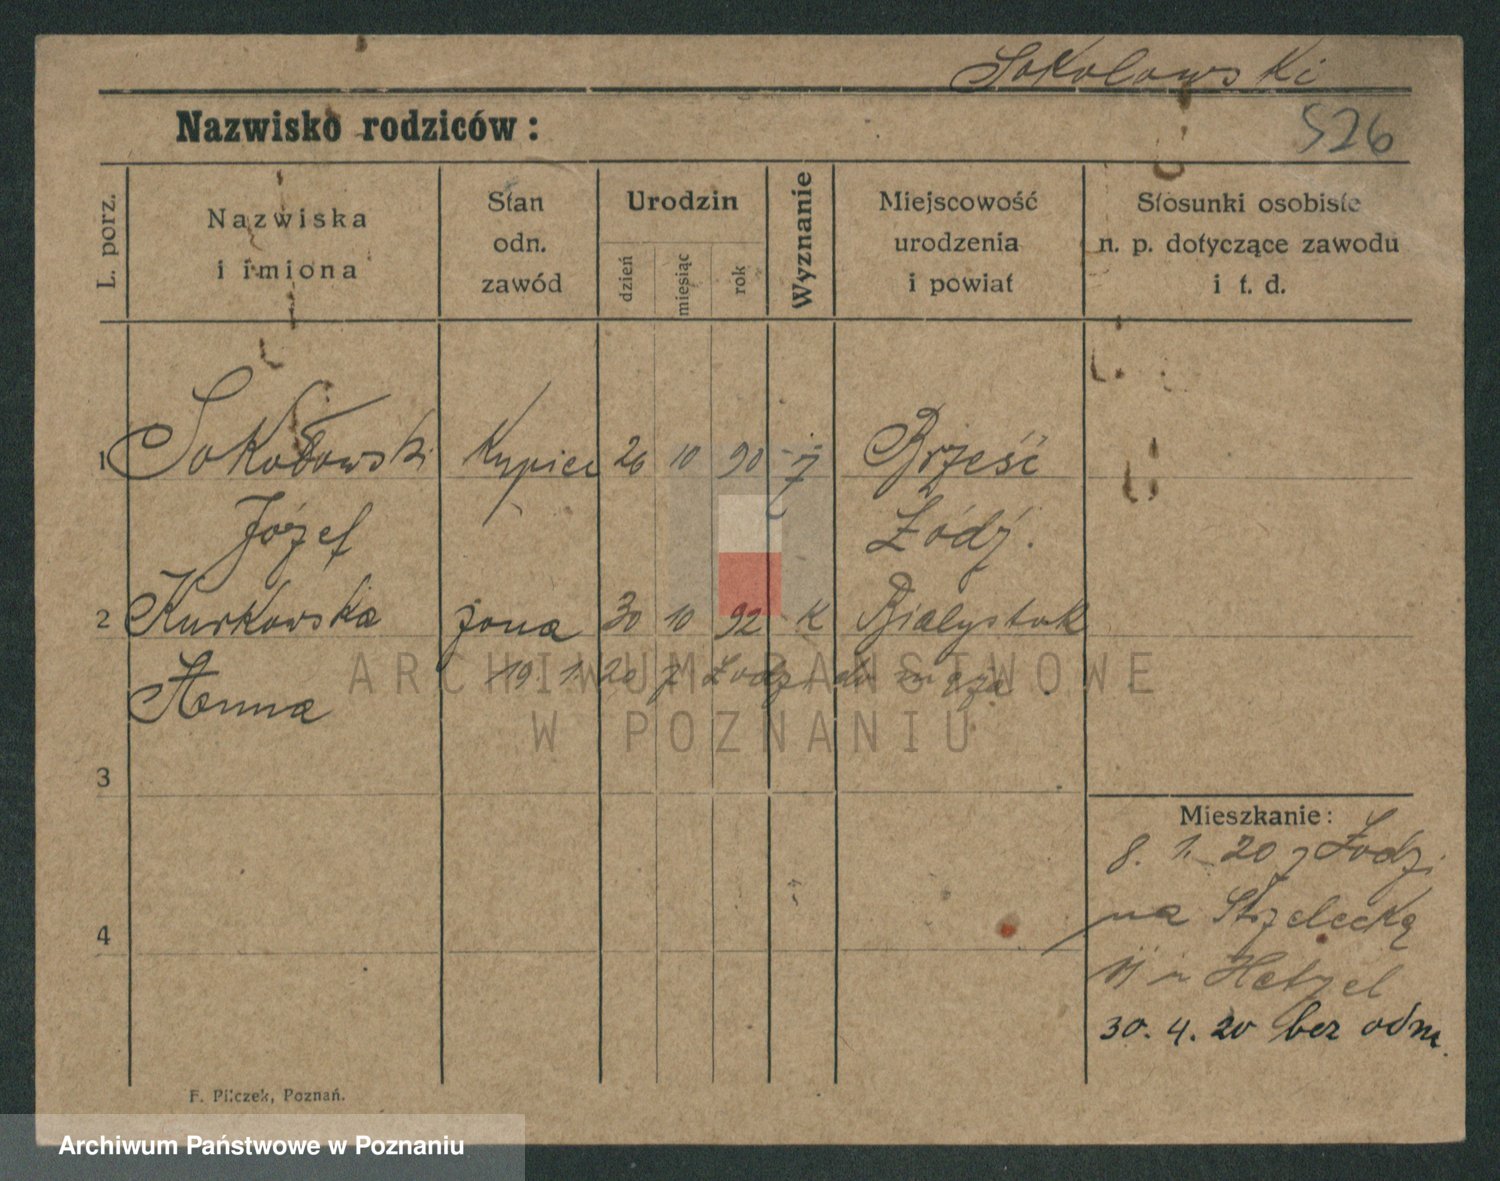 Sokolowski
Nazwisko rodziców:
526
L. porz.
Nazwiska
i imiona
Stan
odn.
zawód
Urodzin
dzień
miesiąc
rok
Wyznanie
Miejscowość
urodzenia
i powiat
Stosunki osobiste
n. p. dotyczące zawodu
i t. d.
1 Sokołowski Kupiec 20 10 90 Brześć
Józef Łódź.
2 Kurkowska żona 30 10 92 K Białystok
19 1. 20 z Łodzi do męża.
Anna
ARCHIWUM PAŃSTWOWE
W POZNANIU
3
Mieszkanie:
8. 1. 20 z Łodzi
na Strzelecką
4
Hetzel
30. 4. 20 bez odm.
F. Pilczek, Poznań.
Archiwum Państwowe w Poznaniu